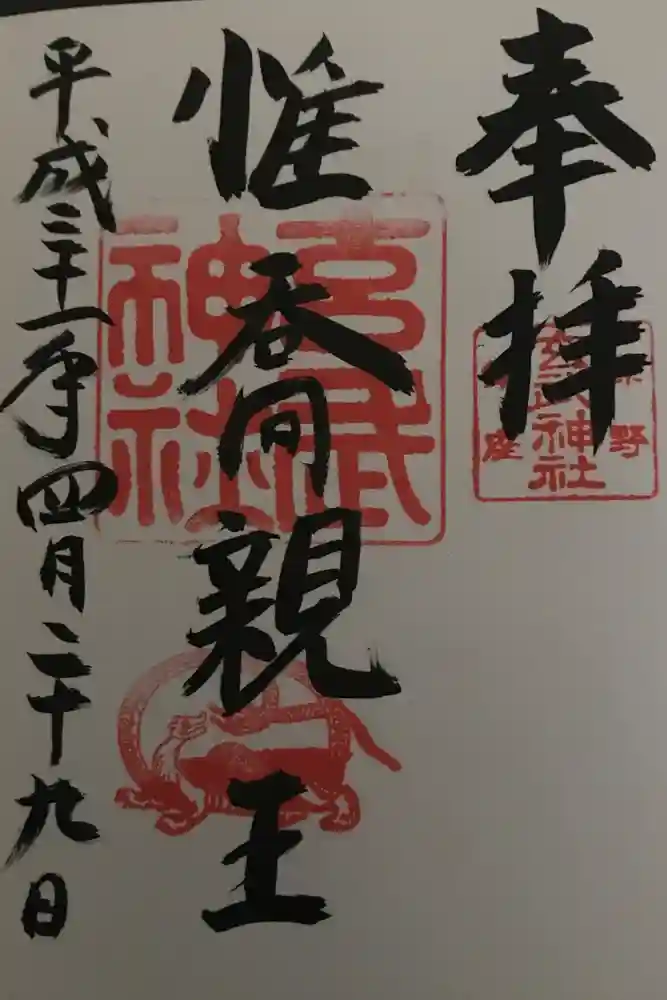 奉拝
紫野
玄武神社
座
惟喬親王
玄武
神社
平成三十一年四月二十九日